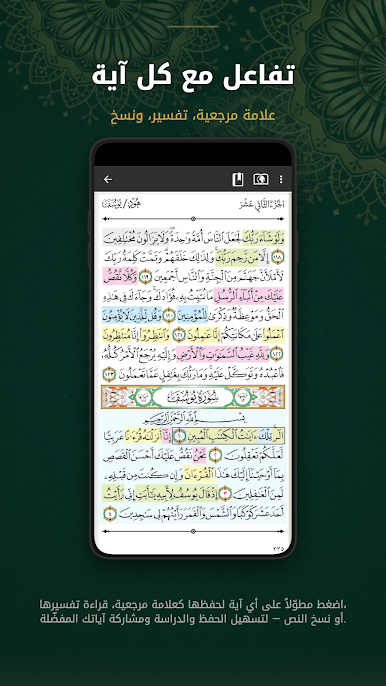 تفاعل مع كل آية
علامة مرجعية، تفسير، ونسخ
الجزء الثاني عشر
هود / يوسف
وَلَوْ شَاءَ رَبُّكَ لَجَعَلَ النَّاسَ أُمَّةً وَاحِدَةً وَلَا يَزَالُونَ مُخْتَلِفِينَ
١١٨ إِلَّا مَن رَّحِمَ رَبُّكَ وَلِذَٰلِكَ خَلَقَهُمْ وَتَمَّتْ كَلِمَةُ رَبِّكَ
لَأَمْلَأَنَّ جَهَنَّمَ مِنَ الْجِنَّةِ وَالنَّاسِ أَجْمَعِينَ ١١٩ وَكُلًّا نَّقُصُّ
عَلَيْكَ مِنْ أَنبَاءِ الرُّسُلِ مَا نُثَبِّتُ بِهِ فُؤَادَكَ وَجَاءَكَ فِي هَٰذِهِ
الْحَقُّ وَمَوْعِظَةٌ وَذِكْرَىٰ لِلْمُؤْمِنِينَ ١٢٠ وَقُل لِّلَّذِينَ لَا يُؤْمِنُونَ
اعْمَلُوا عَلَىٰ مَكَانَتِكُمْ إِنَّا عَامِلُونَ ١٢١ وَانتَظِرُوا إِنَّا مُنتَظِرُونَ
١٢٢ وَلِلَّهِ غَيْبُ السَّمَاوَاتِ وَالْأَرْضِ وَإِلَيْهِ يُرْجَعُ الْأَمْرُ كُلُّهُ
فَاعْبُدْهُ وَتَوَكَّلْ عَلَيْهِ وَمَا رَبُّكَ بِغَافِلٍ عَمَّا تَعْمَلُونَ ١٢٣
سُورَةُ يُوسُفَ
بِسْمِ اللَّهِ الرَّحْمَٰنِ الرَّحِيمِ
الر تِلْكَ آيَاتُ الْكِتَابِ الْمُبِينِ ١ إِنَّا أَنزَلْنَاهُ قُرْآنًا عَرَبِيًّا
لَّعَلَّكُمْ تَعْقِلُونَ ٢ نَحْنُ نَقُصُّ عَلَيْكَ أَحْسَنَ الْقَصَصِ
بِمَا أَوْحَيْنَا إِلَيْكَ هَٰذَا الْقُرْآنَ وَإِن كُنتَ مِن قَبْلِهِ
لَمِنَ الْغَافِلِينَ ٣ إِذْ قَالَ يُوسُفُ لِأَبِيهِ يَا أَبَتِ إِنِّي رَأَيْتُ
أَحَدَ عَشَرَ كَوْكَبًا وَالشَّمْسَ وَالْقَمَرَ رَأَيْتُهُمْ لِي سَاجِدِينَ ٤
٢٣٥
اضغط مطوّلاً على أي آية لحفظها كعلامة مرجعية، قراءة تفسيرها،
أو نسخ النص — لتسهيل الحفظ والدراسة ومشاركة آياتك المفضّلة.